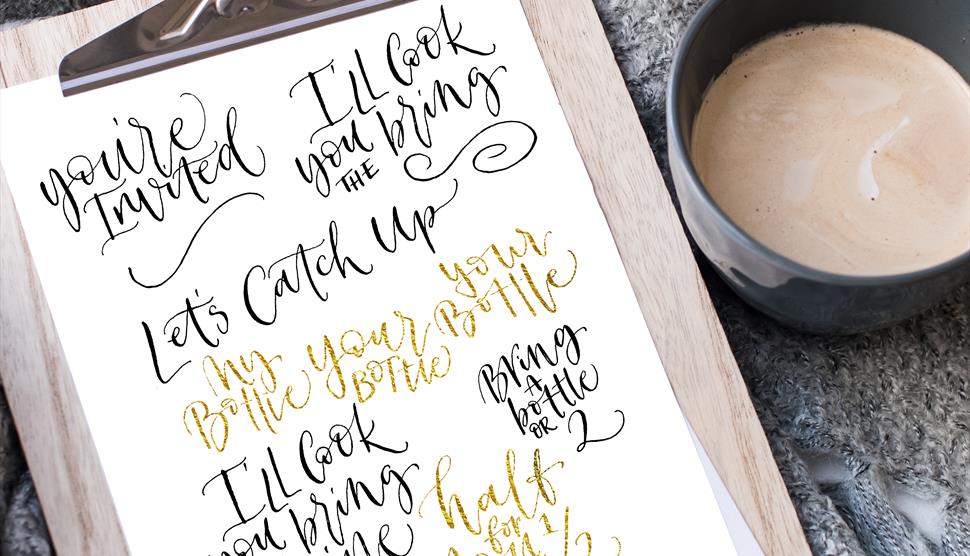 you're
Invited
I'll Cook
you bring
THE
Let's Catch Up
my
Bottle
your
BOTTLE
your
Bottle
Bring
A
bottle
OR 2
I'll Cook
you bring
half
for
1/2